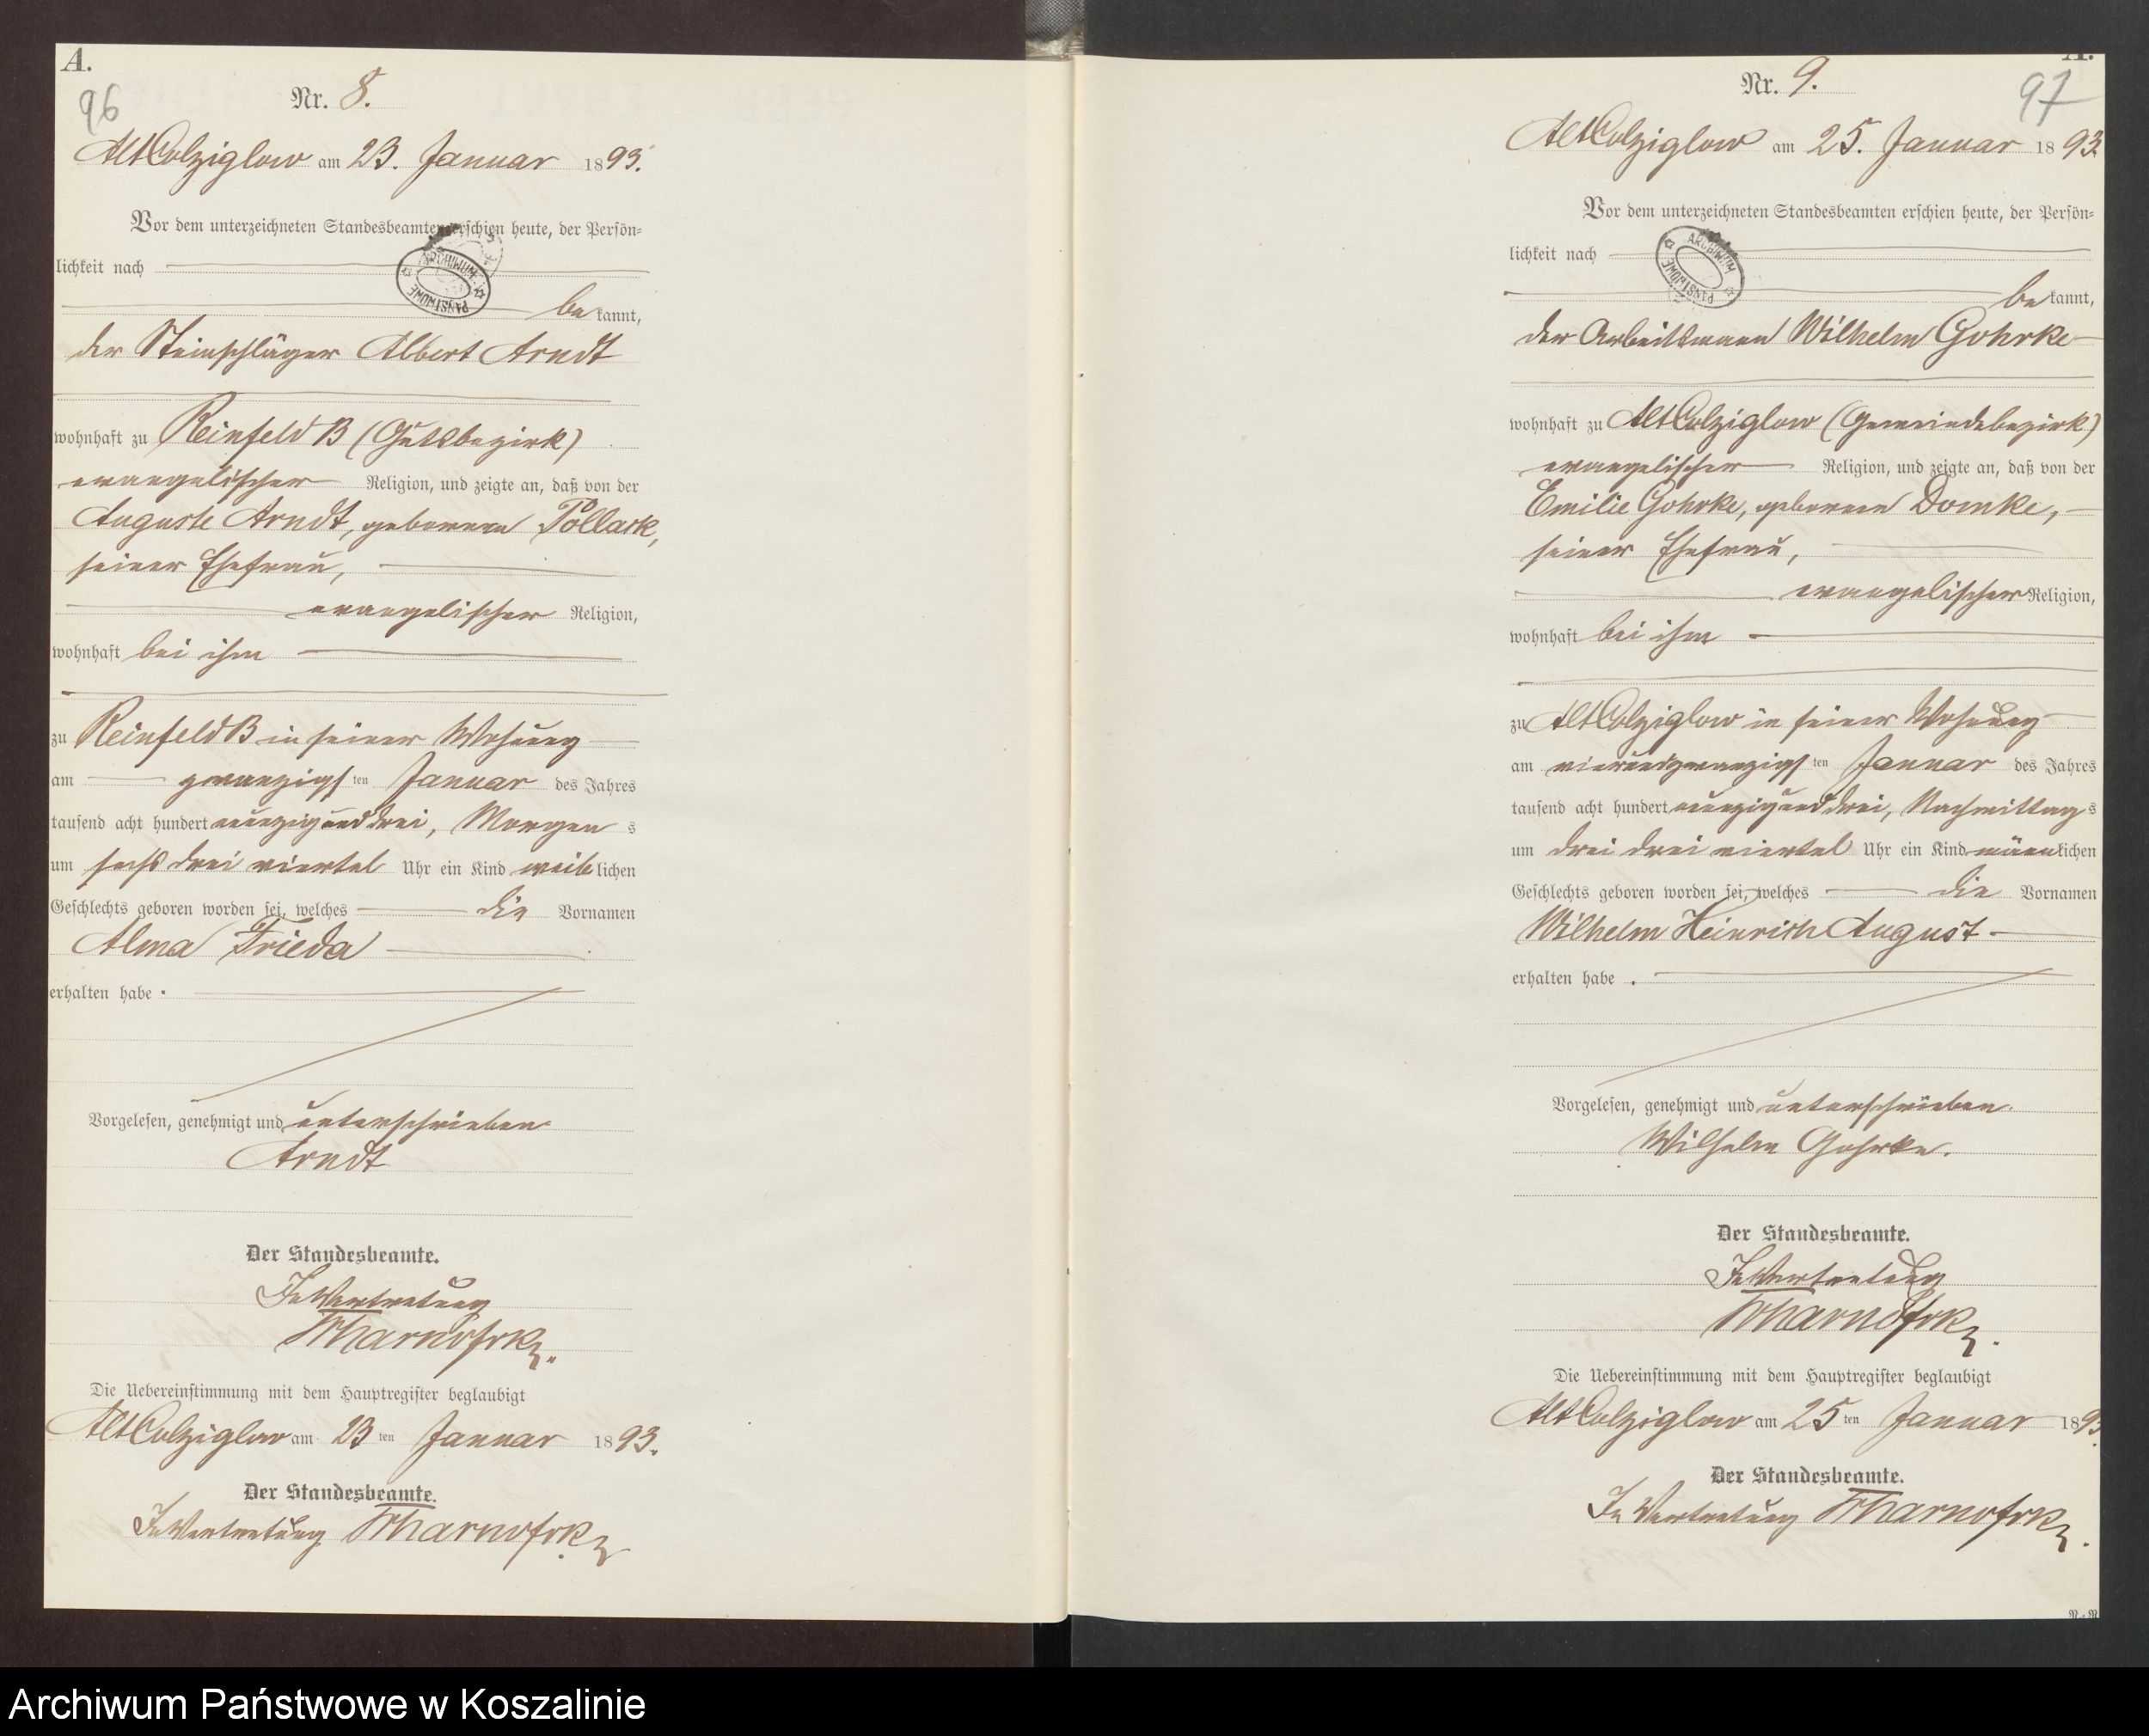 A.
96
Nr. 8.
Alt Colziglow am 23. Januar 1893.
Vor dem unterzeichneten Standesbeamten erschien heute, der Persön-
lichkeit nach
be kannt,
der Steinschläger Albert Arndt
wohnhaft zu Reinfeld B (Gutsbezirk)
evangelischer Religion, und zeigte an, daß von der
Auguste Arndt, geborenen Pollack,
seiner Ehefrau,
evangelischer Religion,
wohnhaft bei ihm
zu Reinfeld B in seiner Wohnung
am zwanzigsten Januar des Jahres
tausend acht hundert neunzig und drei, Morgens
um sechs drei viertel Uhr ein Kind weiblichen
Geschlechts geboren worden sei, welches die Vornamen
Alma Frieda
erhalten habe.
Vorgelesen, genehmigt und unterschrieben
Arndt
Der Standesbeamte.
In Vertretung
Die Uebereinstimmung mit dem Hauptregister beglaubigt
Alt Colziglow am 23ten Januar 1893.
Der Standesbeamte.
In Vertretung
ARCHIWUM PAŃSTWOWE
A.
97
Nr. 9.
Alt Colziglow am 25. Januar 1893.
Vor dem unterzeichneten Standesbeamten erschien heute, der Persön-
lichkeit nach
be kannt,
der Arbeitsmann Wilhelm Gohrke
wohnhaft zu Alt Colziglow (Gemeindebezirk)
evangelischer Religion, und zeigte an, daß von der
Emilie Gohrke, geborenen Domke,
seiner Ehefrau,
evangelischer Religion,
wohnhaft bei ihm
zu Alt Colziglow in seiner Wohnung
am vierundzwanzigsten Januar des Jahres
tausend acht hundert neunzig und drei, Nachmittags
um drei drei viertel Uhr ein Kind männlichen
Geschlechts geboren worden sei, welches die Vornamen
Wilhelm Heinrich August
erhalten habe.
Vorgelesen, genehmigt und unterschrieben.
Wilhelm Gohrke.
Der Standesbeamte.
In Vertretung
Die Uebereinstimmung mit dem Hauptregister beglaubigt
Alt Colziglow am 25ten Januar 1893.
Der Standesbeamte.
In Vertretung
ARCHIWUM PAŃSTWOWE
Archiwum Państwowe w Koszalinie